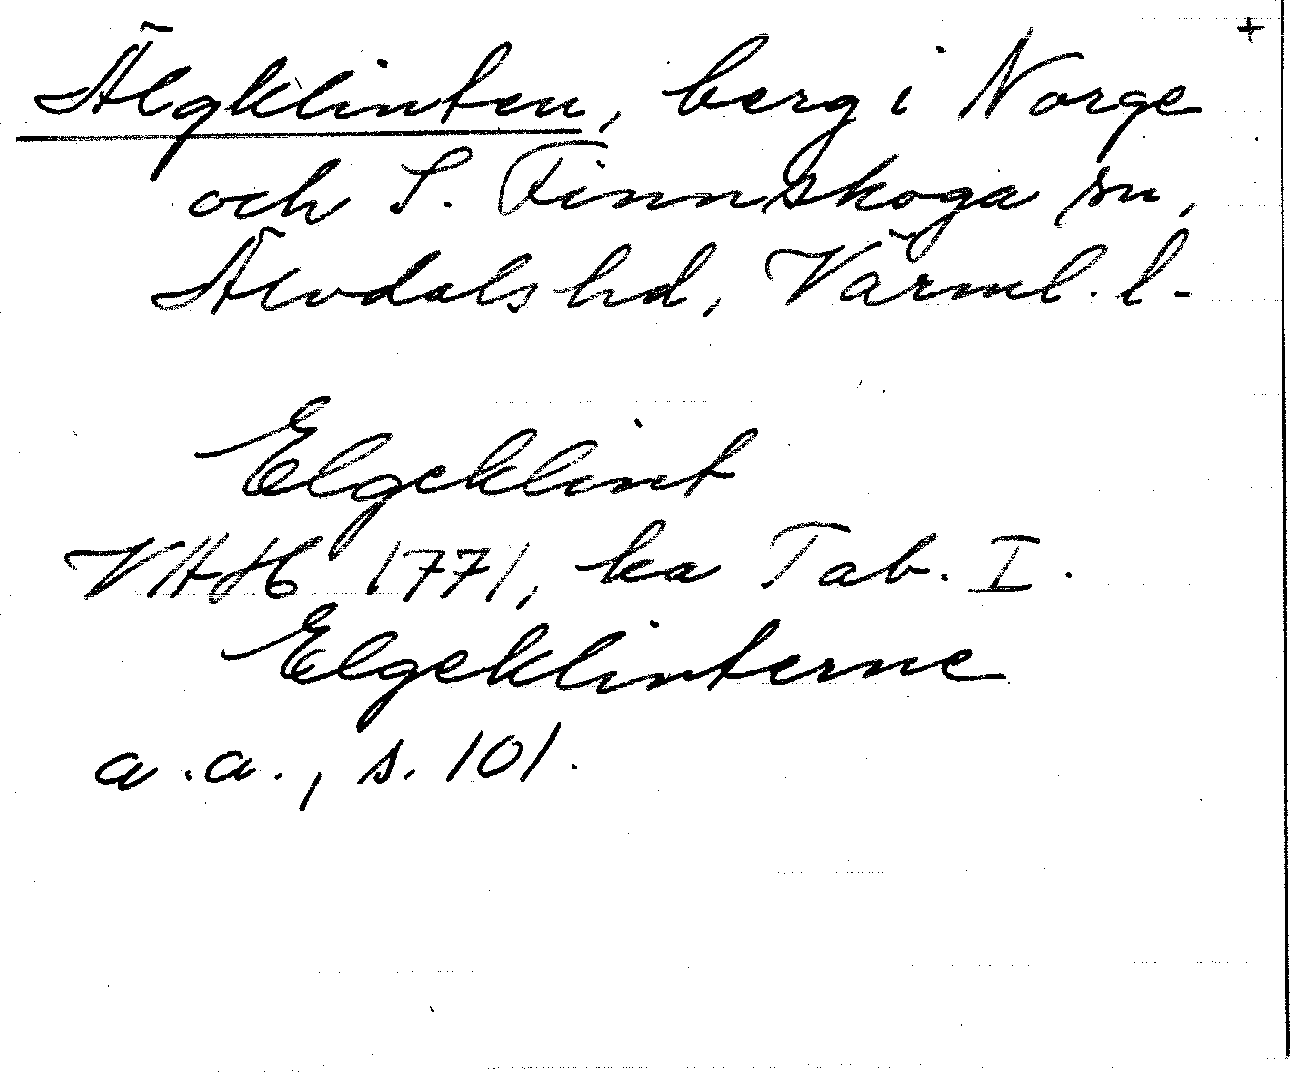 +
Älgklinten, berg i Norge
och S. Finnskoga sn,
Älvdals hd, Värml. l.
Elgeklint
VHH 1771, ka Tab. I.
Elgeklinterne
a.a., s. 101.